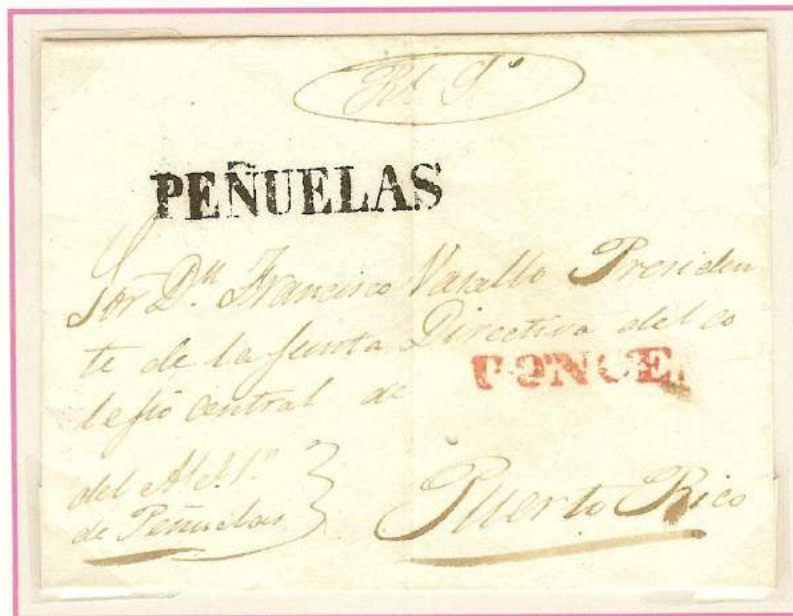 Rl So
PEÑUELAS
Sor Dn Francisco Vasallo Presiden
te de la Junta Directiva del co
lejio central de
PONCE
del Ale 1o
de Peñuelas
Puerto Rico